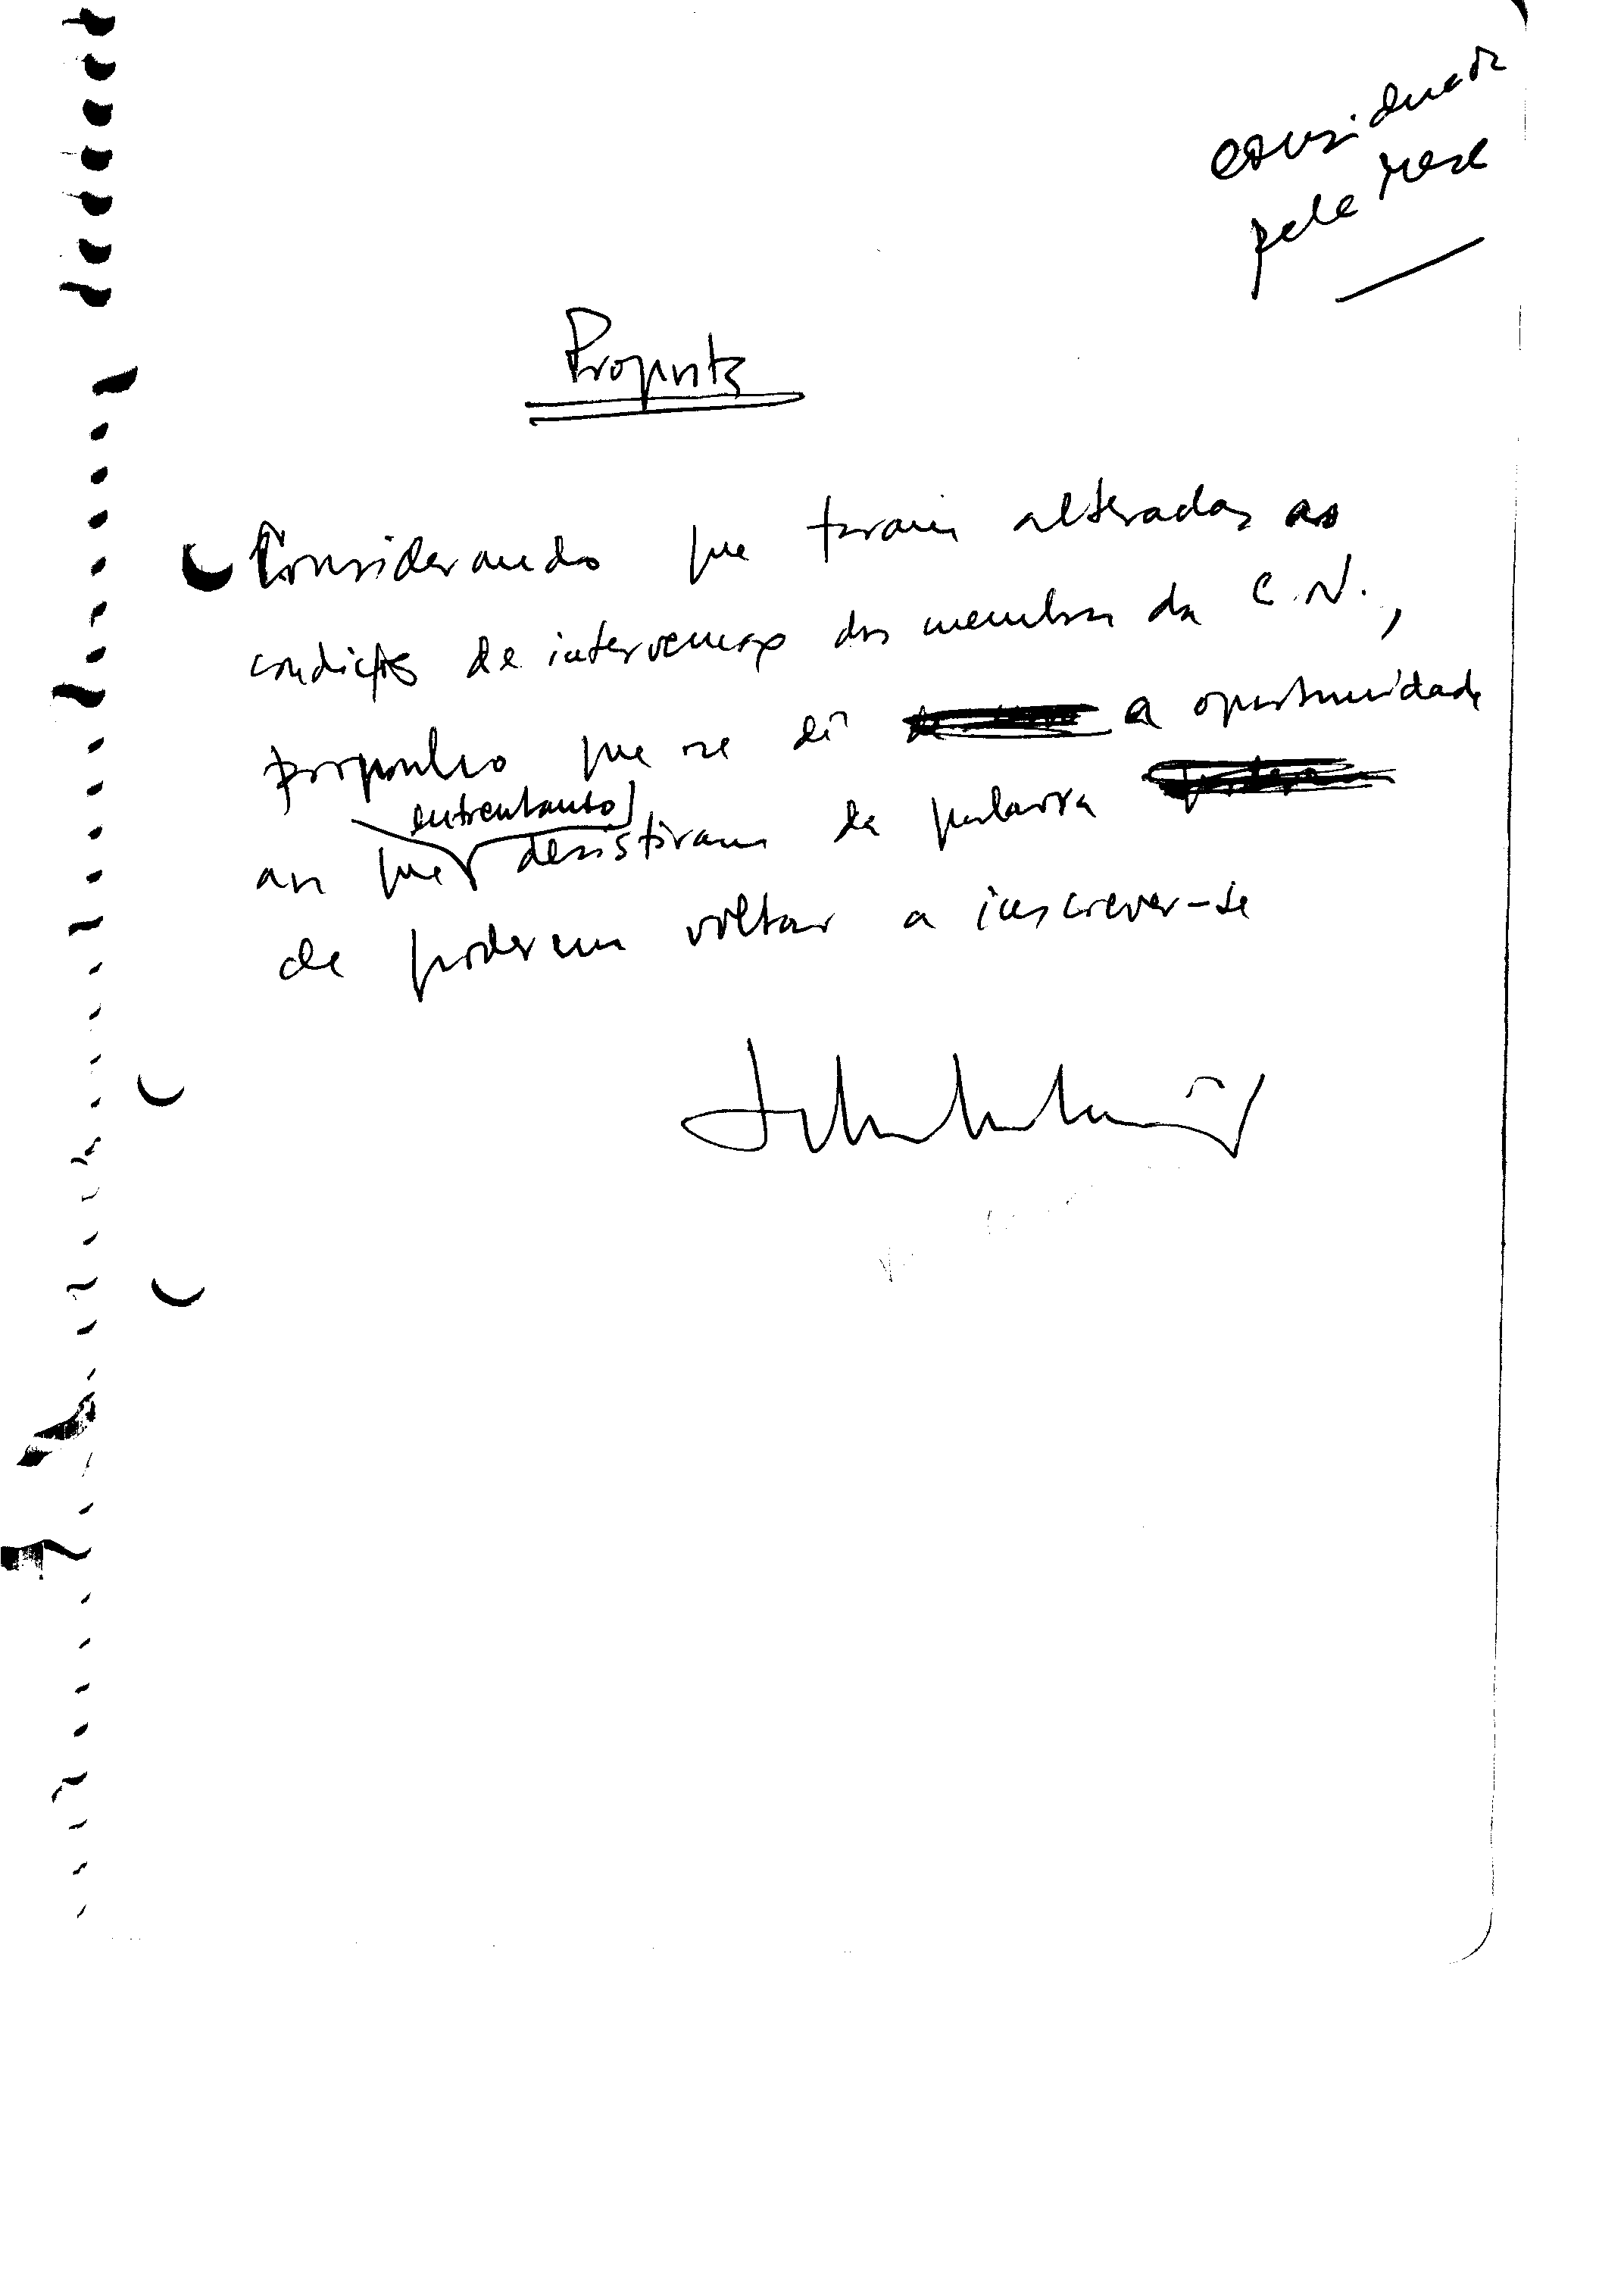 considerada
pela Mesa
Proposta
Considerando que foram alteradas as
condições de intervenção dos membros da C.N.,
proponho que se dê a oportunidade
entretanto
aos que desistiram da palavra
de poderem voltar a inscrever-se